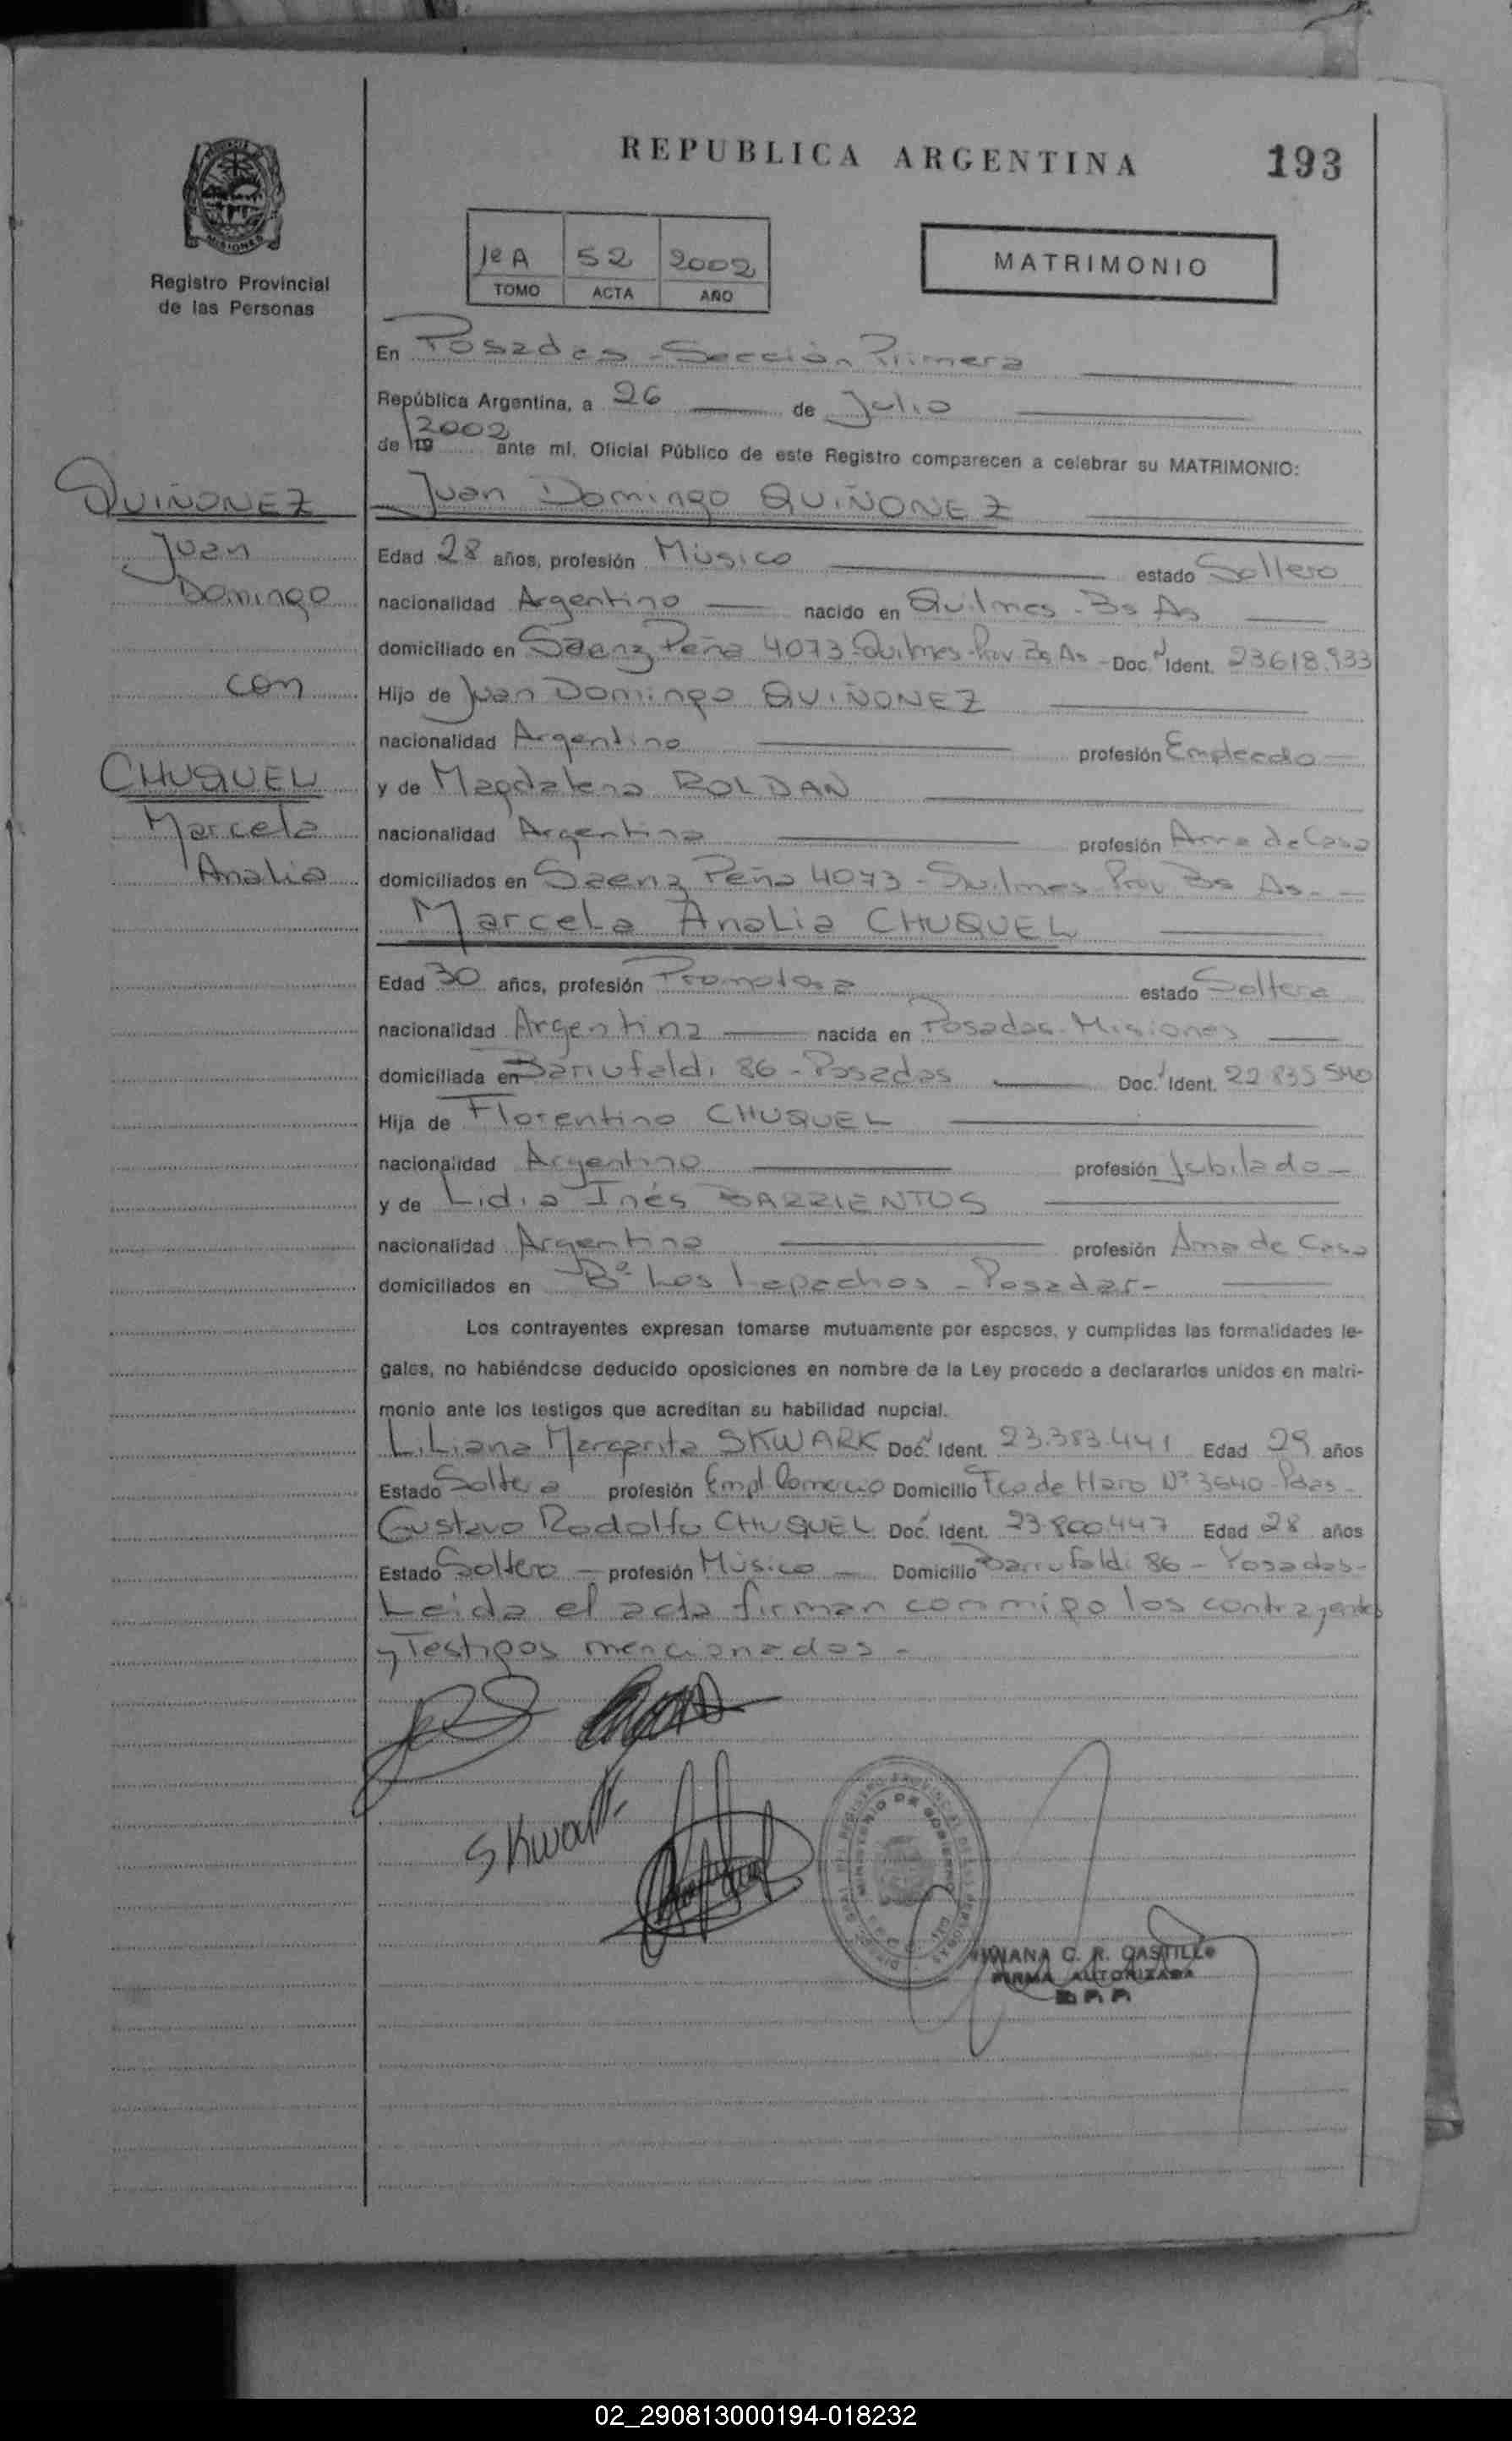 REPUBLICA ARGENTINA
193
Registro Provincial
de las Personas
MISIONES
1ºA 52 2002
TOMO ACTA AÑO
MATRIMONIO
En Posadas - Sección Primera
República Argentina, a 26 de Julio
de 19 2002 ante mí, Oficial Público de este Registro comparecen a celebrar su MATRIMONIO:
QUIÑONEZ
Juan
Domingo
con
CHUQUEL
Marcela
Analia
Juan Domingo QUIÑONEZ
Edad 28 años, profesión Músico estado Soltero
nacionalidad Argentino nacido en Quilmes - Bs As
domiciliado en Saenz Peña 4073 - Quilmes - Prov Bs As - Doc. Ident. 23.618.933
Hijo de Juan Domingo QUIÑONEZ
nacionalidad Argentino profesión Empleado
y de Magdalena ROLDAN
nacionalidad Argentina profesión Ama de Casa
domiciliados en Saenz Peña 4073 - Quilmes - Prov Bs As. -
Marcela Analia CHUQUEL
Edad 30 años, profesión Promotora estado Soltera
nacionalidad Argentina nacida en Posadas - Misiones
domiciliada en Barrufaldi 86 - Posadas Doc. Ident. 22.835.540
Hija de Florentino CHUQUEL
nacionalidad Argentino profesión Jubilado -
y de Lidia Inés BARRIENTOS
nacionalidad Argentina profesión Ama de Casa
domiciliados en Bº Los Lapachos - Posadas -
Los contrayentes expresan tomarse mutuamente por esposos, y cumplidas las formalidades le-
gales, no habiéndose deducido oposiciones en nombre de la Ley procedo a declararlos unidos en matri-
monio ante los testigos que acreditan su habilidad nupcial.
Liliana Margarita SKWARK Doc. Ident. 23.383.441 Edad 29 años
Estado Soltera profesión Empl. Comercio Domicilio Fco de Haro Nº 3640 - Pdas -
Gustavo Rodolfo CHUQUEL Doc. Ident. 23.800.447 Edad 28 años
Estado Soltero - profesión Músico - Domicilio Barrufaldi 86 - Posadas -
Leida el acta firman conmigo los contrayentes
y Testigos mencionados -
Skwark
MINISTERIO DE GOBIERNO
C. R. CASTILLO
FIRMA AUTORIZADA
02_290813000194-018232